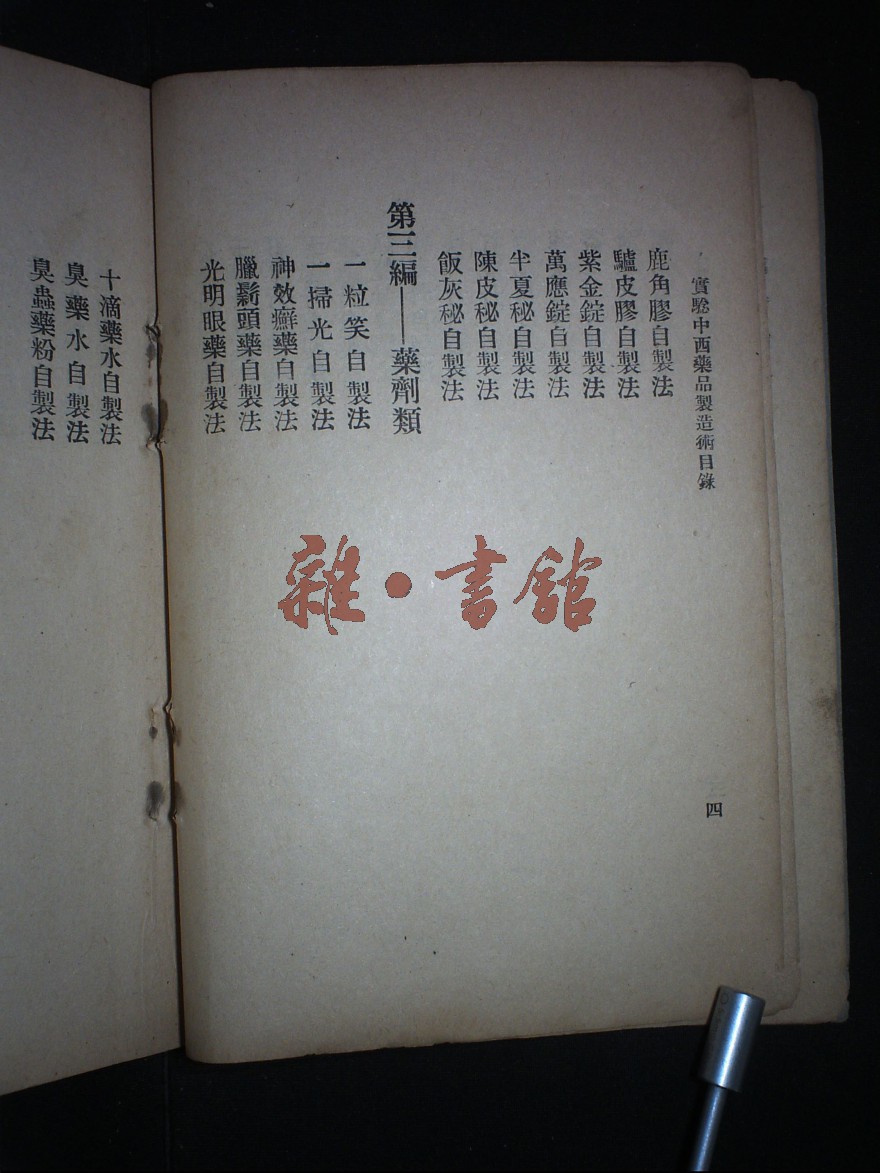 實驗中西藥品製造術目錄
四
鹿角膠自製法
驢皮膠自製法
紫金錠自製法
萬應錠自製法
半夏秘自製法
陳皮秘自製法
飯灰秘自製法
第三編——藥劑類
一粒笑自製法
一掃光自製法
神效癬藥自製法
臘鬁頭藥自製法
光明眼藥自製法
十滴藥水自製法
臭藥水自製法
臭蟲藥粉自製法
雜·書館